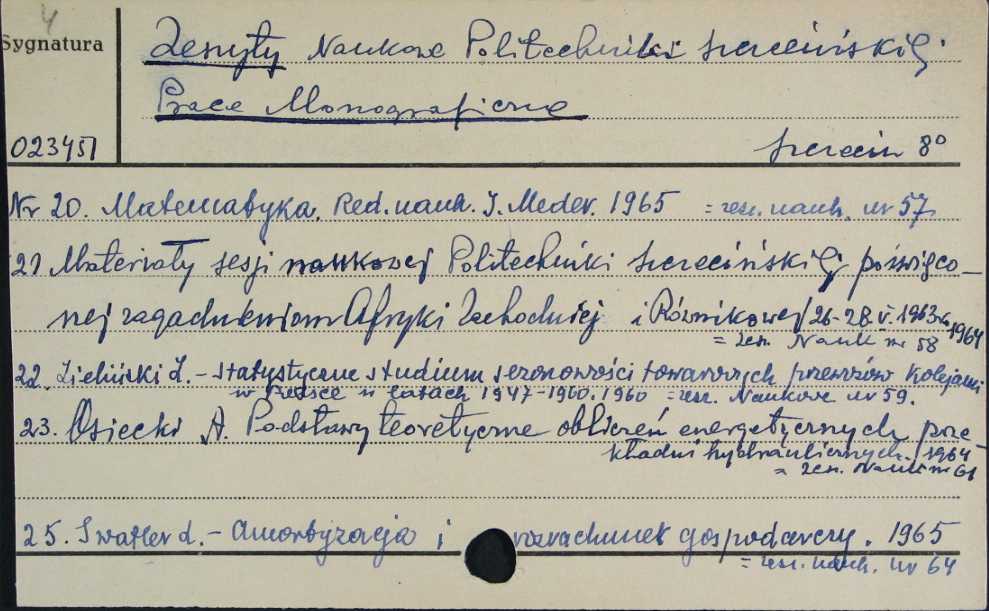 4
Sygnatura
Zeszyty Naukowe Politechniki Szczecińskiej.
Prace Monograficzne
023451
Szczecin 8°
Nr 20. Matematyka. Red. nauk. J. Meder. 1965 = zesz. nauk. nr 57
21 Materiały sesji naukowej Politechniki Szczecińskiej poświęco-
nej zagadnieniom Afryki Zachodniej i Równikowej 26-28 V. 1963 r. 1964
= zesz. Nauk nr 58
22. Zieliński Z. - Statystyczne studium sezonowości towarowych przewozów kolejami
w Polsce w latach 1947-1960. 1960 = zesz. Naukowe nr 59.
23. Osiecki A. Podstawy teoretyczne obliczeń energetycznych prze-
kładni hydraulicznych. 1964
= zesz. Nauk nr 61
25. Swatler L. - Amortyzacja i rozrachunek gospodarczy. 1965
= zesz. nauk. nr 64